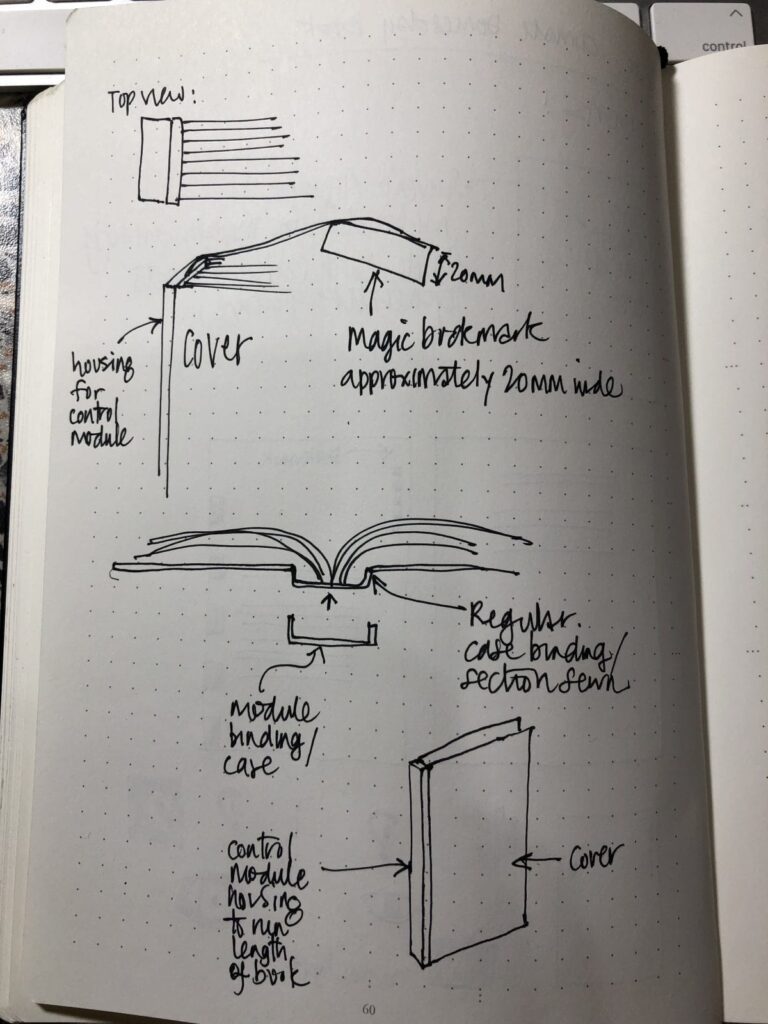 Top view:
20mm
Magic bookmark
approximately 20mm wide
cover
housing
for
control
module
Regular.
case binding/
section sewn
module
binding/
case
control
module
housing
to run
length
of book
cover
60
control